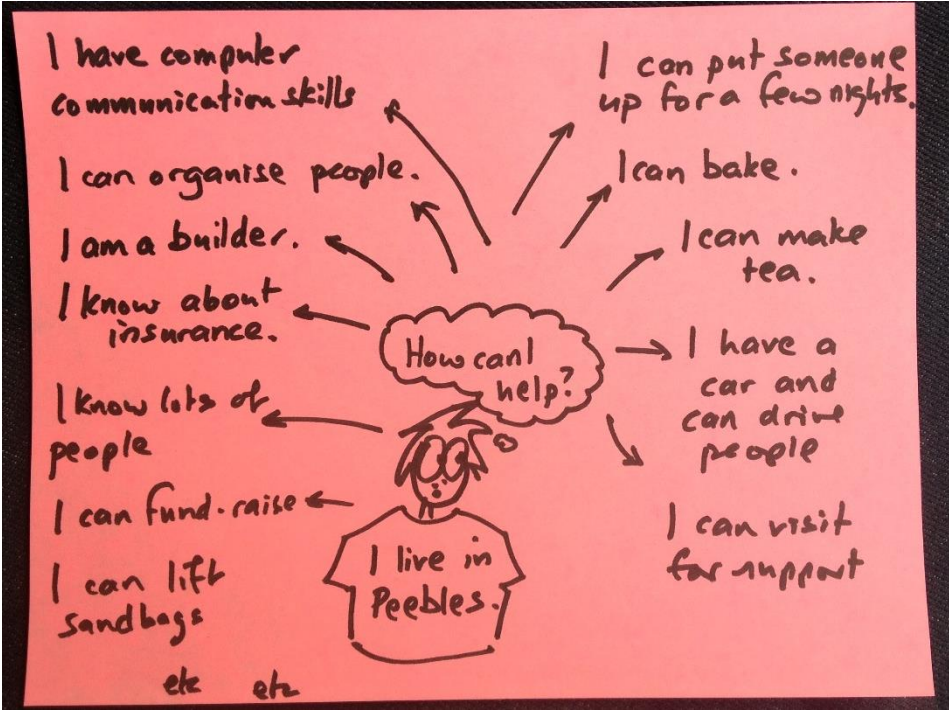 I have computer
communication skills
I can organise people.
I am a builder.
I know about
insurance.
I know lots of
people
I can fund-raise
I can lift
sandbags
etc etc
How can I
help?
I live in
Peebles.
I can put someone
up for a few nights.
I can bake.
I can make
tea.
I have a
car and
can drive
people
I can visit
for support